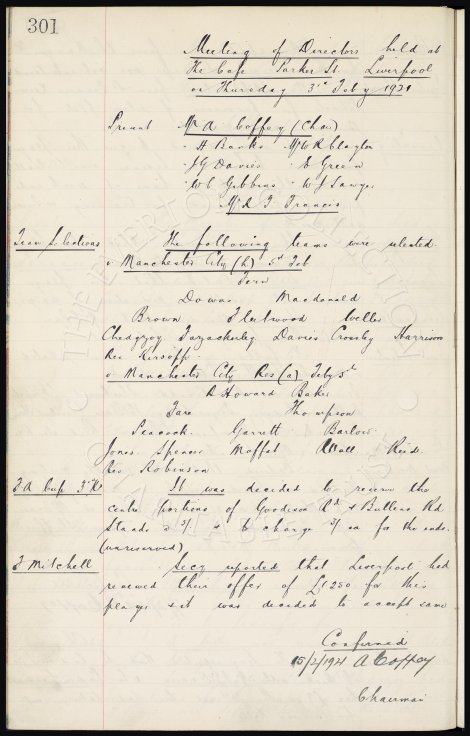 301
Meeting of Directors held at
The Cafe Parker St. Liverpool
on Thursday 3rd Feby 1921
Present Mr A Coffey (Chair)
" H Banks Mr C R Clayton
" J G Davies " E Green
" W C Gibbins " W J Sawyer
Mr D T Francis
Team Selections The following teams were selected.
v. Manchester City (h) 5th Feb
Fern
Downs Macdonald
Brown Fleetwood Weller
Chedgzoy Fazackerley Davies Crossley Harrison
Res Kirsopp.
v. Manchester City Res (a) Feby 5th
R Howard Baker
Fare Thompson
Peacock. Garrett Barlow.
Jones. Spencer Moffat Wall Reid.
Res Robinson
F A Cup 3rd Rd It was decided to reserve the
centre portions of Goodison Rd & Bullens Rd
Stands @ 5/ & to charge 3/ ea for the ends.
(unreserved)
F Mitchell Secy reported that Liverpool had
renewed their offer of £1250 for this
player & it was decided to accept same
Confirmed
15/2/1921 A Coffey
Chairman
THE EVERTON COLLECTION
CHARITABLE TRUST